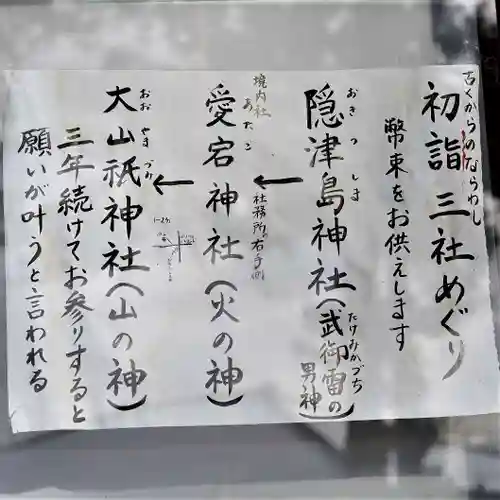 古くからのならわし
初詣 三社めぐり
幣束をお供えします
おきつしま
隠津島神社(武御雷の男神)
たけみかづち
境内社
あたこ
愛宕神社(火の神)
社務所右手側
おおやまづみ
大山祇神社(山の神)
三年続けてお参りすると
願いが叶うと言われる